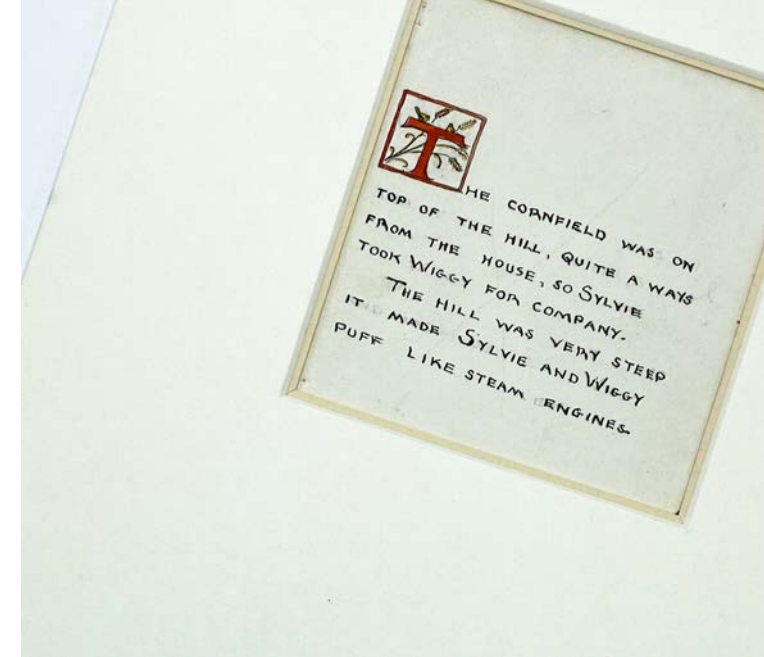 THE CORNFIELD WAS ON
TOP OF THE HILL, QUITE A WAYS
FROM THE HOUSE, SO SYLVIE
TOOK WIGGY FOR COMPANY.
THE HILL WAS VERY STEEP
IT MADE SYLVIE AND WIGGY
PUFF LIKE STEAM ENGINES.